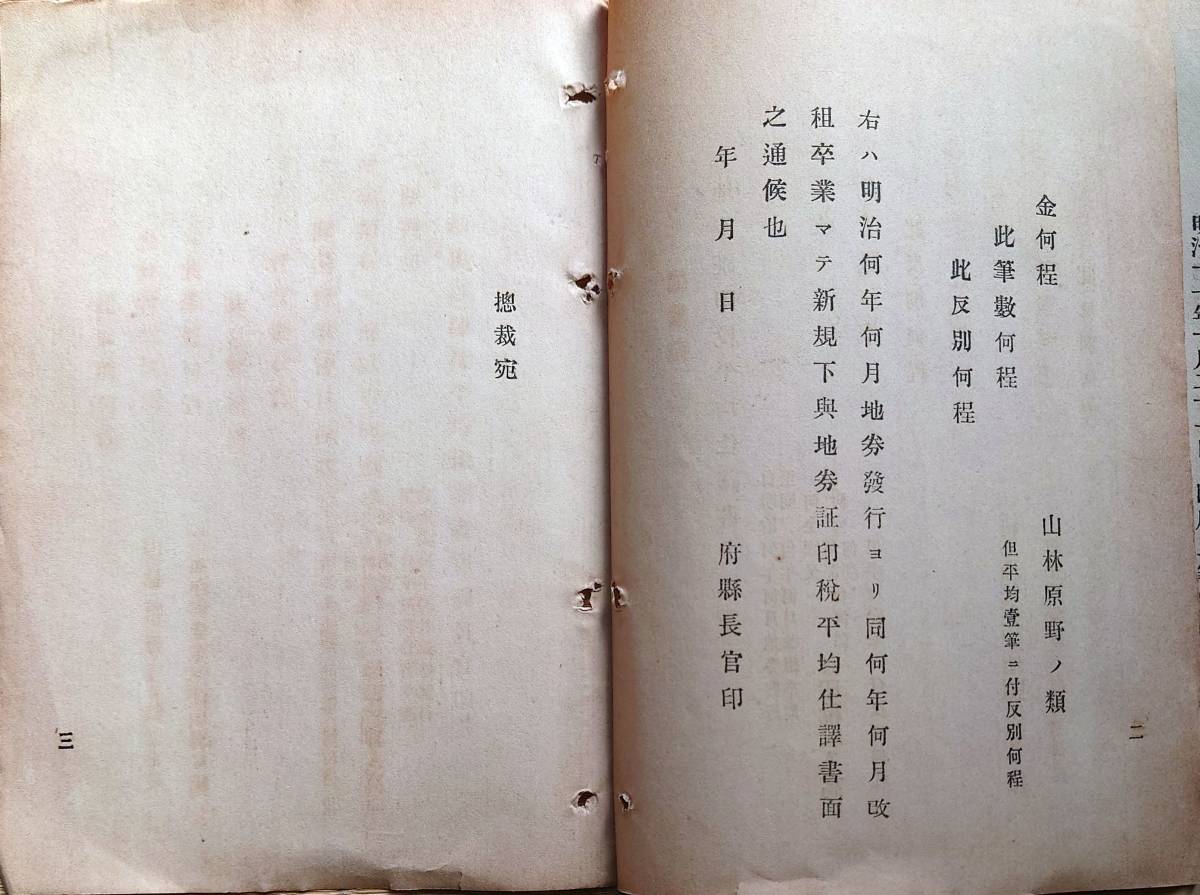 二
金何程
山林原野ノ類
此筆數何程
但平均壹筆ニ付反別何程
此反別何程
右ハ明治何年何月地券發行ヨリ同何年何月改
租卒業マテ新規下與地券証印税平均仕譯書面
之通候也
年月日
府縣長官印
摠裁宛
三